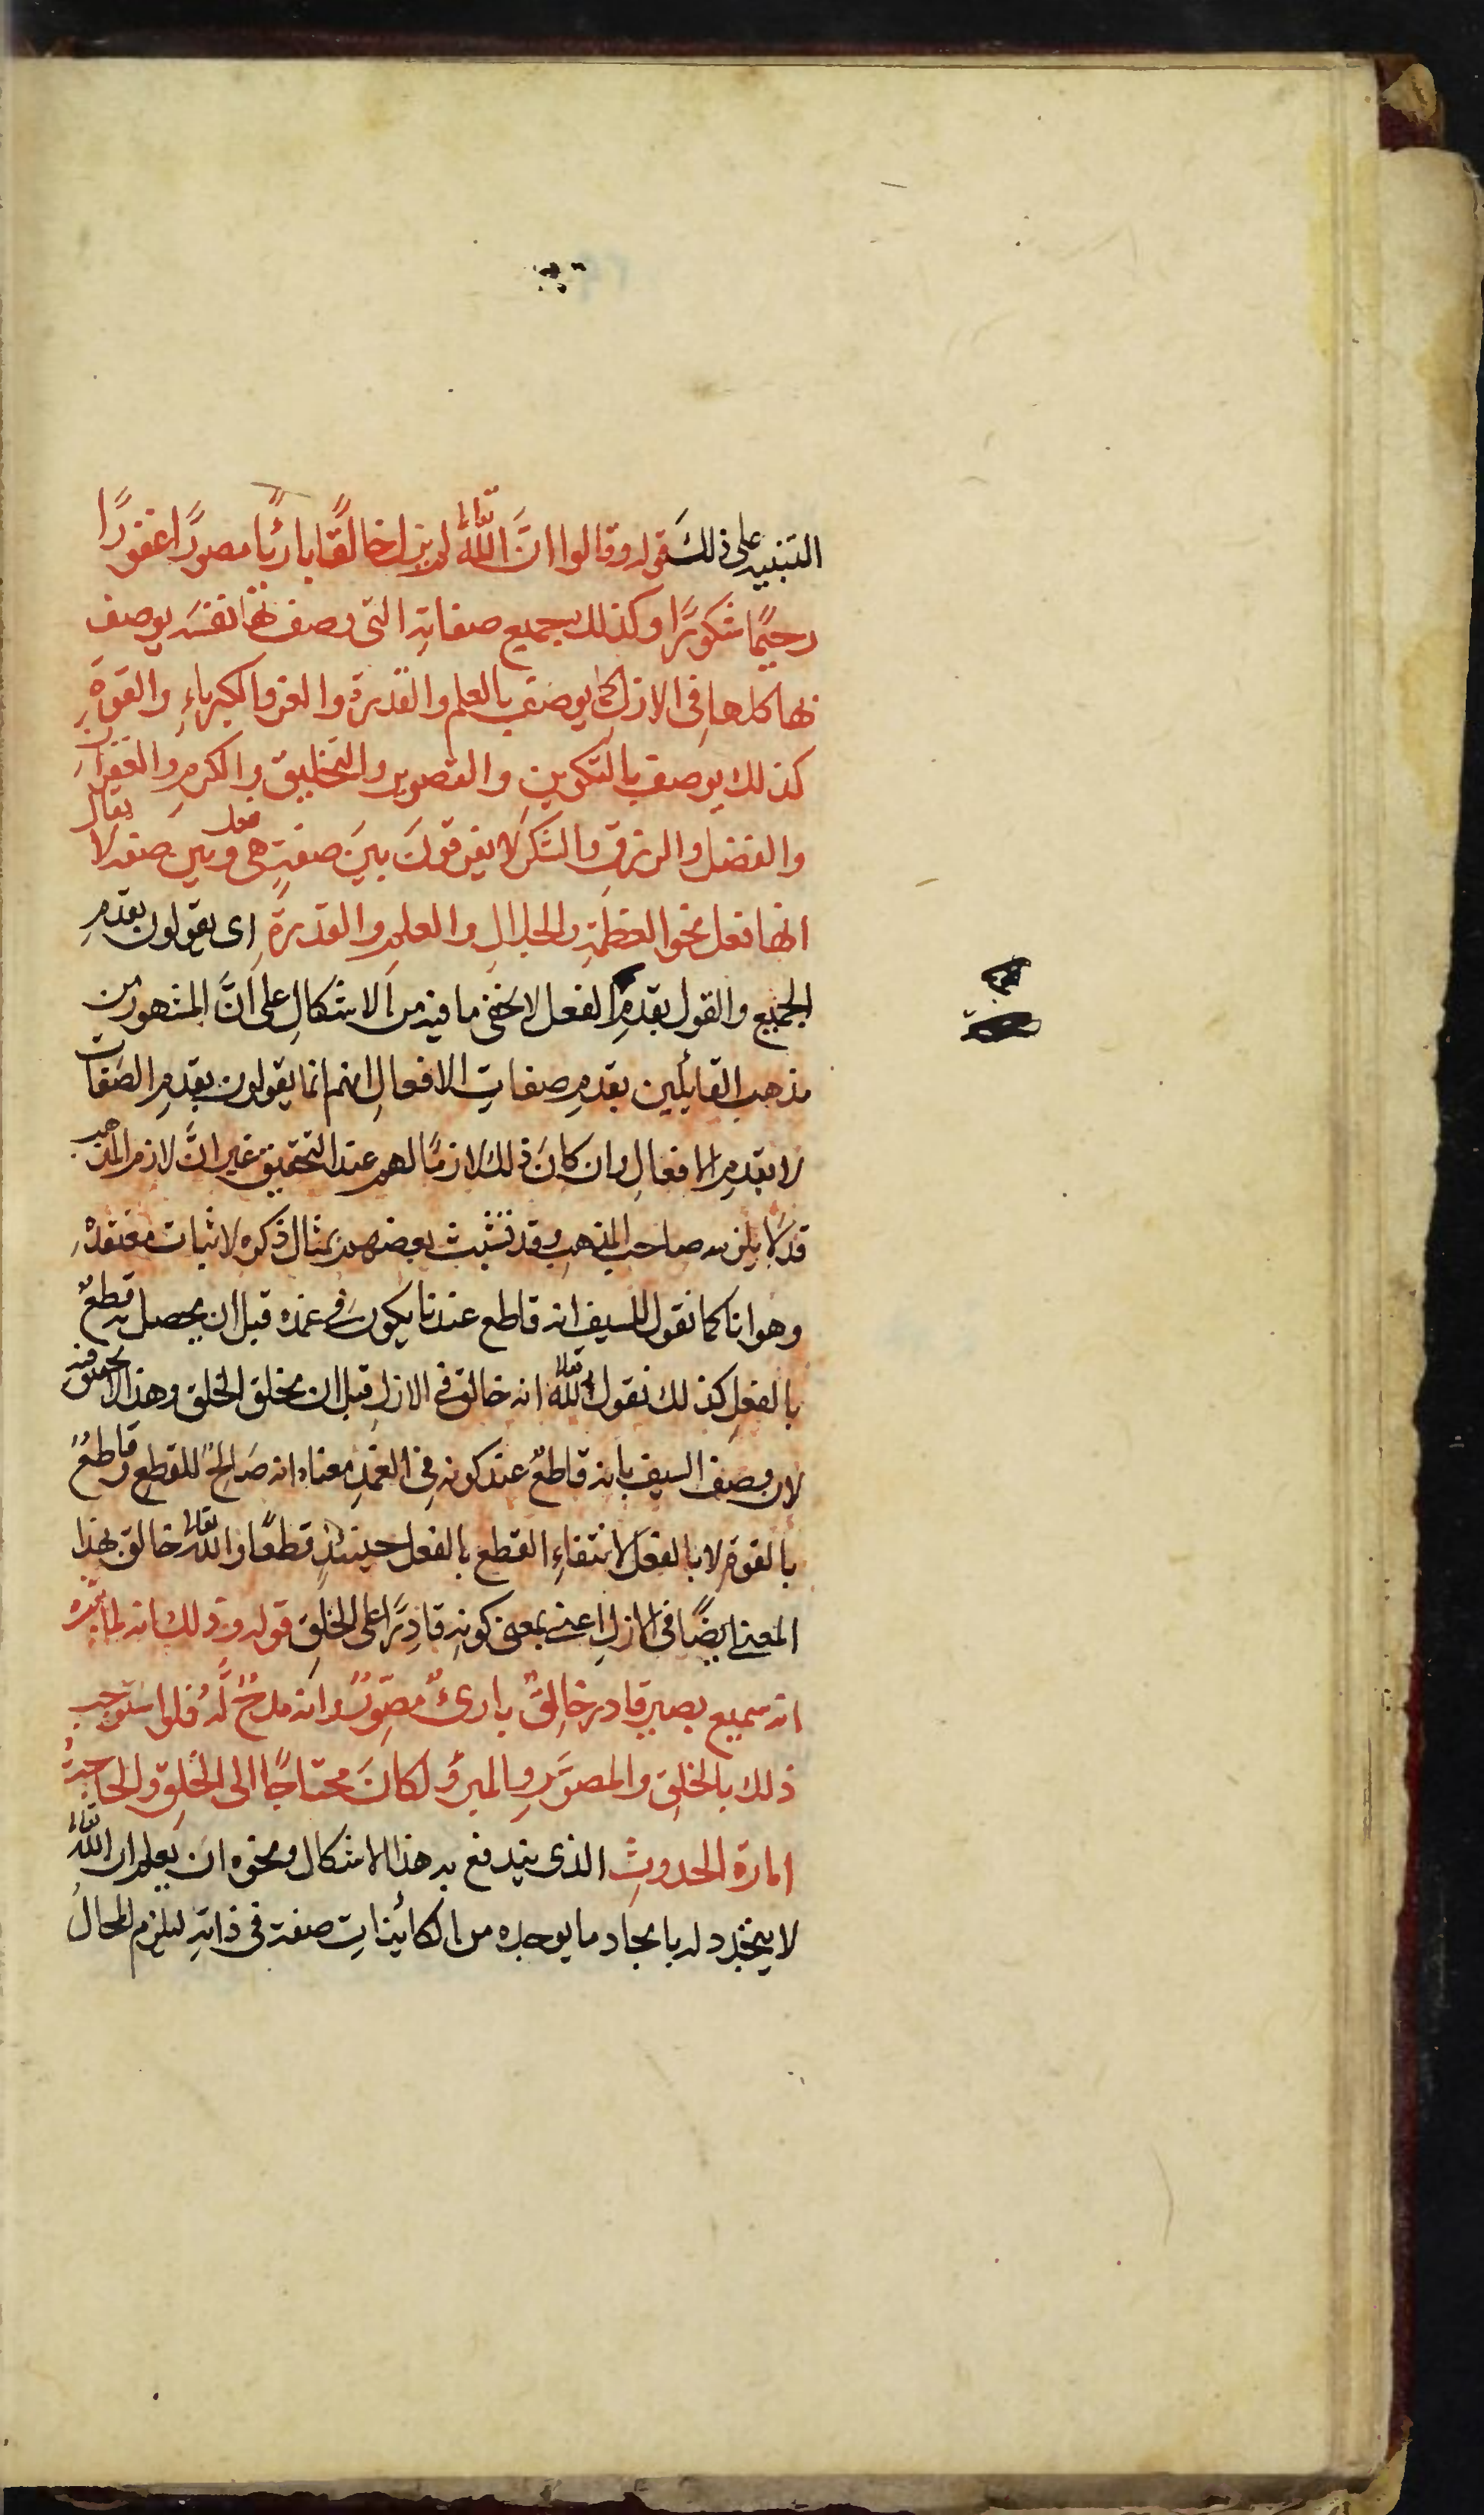 التنبيه على ذلك قوله وقالوا انَّ اللهَ تعالى لم يزل خالقًا بارئًا مصورًا غفورًا
رحيمًا شكورًا وكذلك بجميع صفاتهِ التى وصف بها نفسَه يوصف
بها كلها فى الازل كما يوصف بالعلم والقدرة والعز والكبرياءِ والقوةِ
كذلك يوصف بالتكوينِ والتصويرِ والتخليقِ والكرمِ والغفرانِ
والفضل والرزق والشكر لا يفرقونَ بينَ صفةٍ هى فعل وبين صفة لا يقال
انها فعل نحو العظمةِ والجلالِ والعلمِ والقدرةِ اى يقولون بقدمِ
الجميع والقول بقدمِ الفعل لا يخفى ما فيه من الاشكالِ على انَّ المشهور من
مذهب القائلين بقدمِ صفاتِ الافعالِ انهم انما يقولون بقدمِ الصفات
لا بقدمِ الافعالِ وان كانَ ذلك لازمًا لهم عند التحقيق غير انَّ لازم المذهب
قد لا يلزمه صاحب المذهب وقد تشبث بعضهم بمثال ذكره لاثبات معتقدهِ
وهو انا كما نقول للسيف انه قاطع عندنا يكونَ فى غمده قبل ان يحصل به قطعٌ
بالفعلِ كذلك نقول لله تعالى انه خالق فى الازلِ قبل ان يخلق الخلق وهذا لا تحقيق فيه
لان وصف السيف بانه قاطعٌ عند كونه فى الغمدِ معناه انه صَالحٌ للقطع وقاطعٌ
بالقوة لا بالفعل لانتفاءِ القطع بالفعل حينئذٍ قطعًا والله تعالى خالق بهذا
المعنى ايضًا فى الازلِ اعنى بمعنى كونهِ قادرًا على الخلقِ قوله وذلك انه
انه سميع بصير قادر خالقٌ بارىٌ مصوِّرٌ وانه مدحٌ لَّه فلو استوجب
ذلك بالخلقِ والمصوَّرِ والمبرؤ لكانَ محتاجًا الى الخلقِ والحاجةُ
امارة الحدوثِ الذى يندفع به هذا الاشكال ونحوه ان يعلم ان الله تعالى
لا يتجدد له بايجاد ما يوجده من الكائيناتِ صفة فى ذاتهِ ليلزم المحال